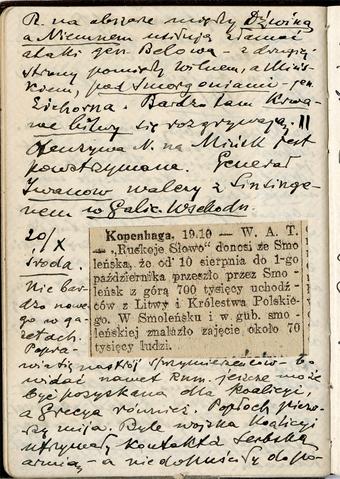 R. na obszarze między Dźwiną
a Niemnem usiłują złamać
ataki gen. Belowa – z drugiej
strony pomiędzy Wilnem, a Miń-
skiem, pod Smorgoniami – gen.
Eichorna. Bardzo tam krwa-
we bitwy się rozgrywają. II
Ofenzywa N. na Mińsk jest
powstrzymana. Generał
Iwanow walczy z Linsinge-
nem w Galic. Wschodn.
20/X
środa.
Kopenhaga. 19.10 — W. A. T.
— „Ruskoje Słowo" donosi ze Smo
leńska, że od 10 sierpnia do 1-go
października przeszło przez Smo
leńsk z górą 700 tysięcy uchodź-
ców z Litwy i Królestwa Polskie-
go. W Smoleńsku i w gub. smo-
leńskiej znalazło zajęcie około 70
tysięcy ludzi.
Nie bar-
dzo nowe-
go w ga-
zetach.
Popra-
nastrój sprzymierzeńców
widać nawet Rum. jeszcze może
być pozyskana dla koalicyi,
a Grecya również. Popłoch pierw-
szy mija. Byle wojska koalicyi
utrzymały kontakt z Serbską
armią – a nie dopuściły do po-